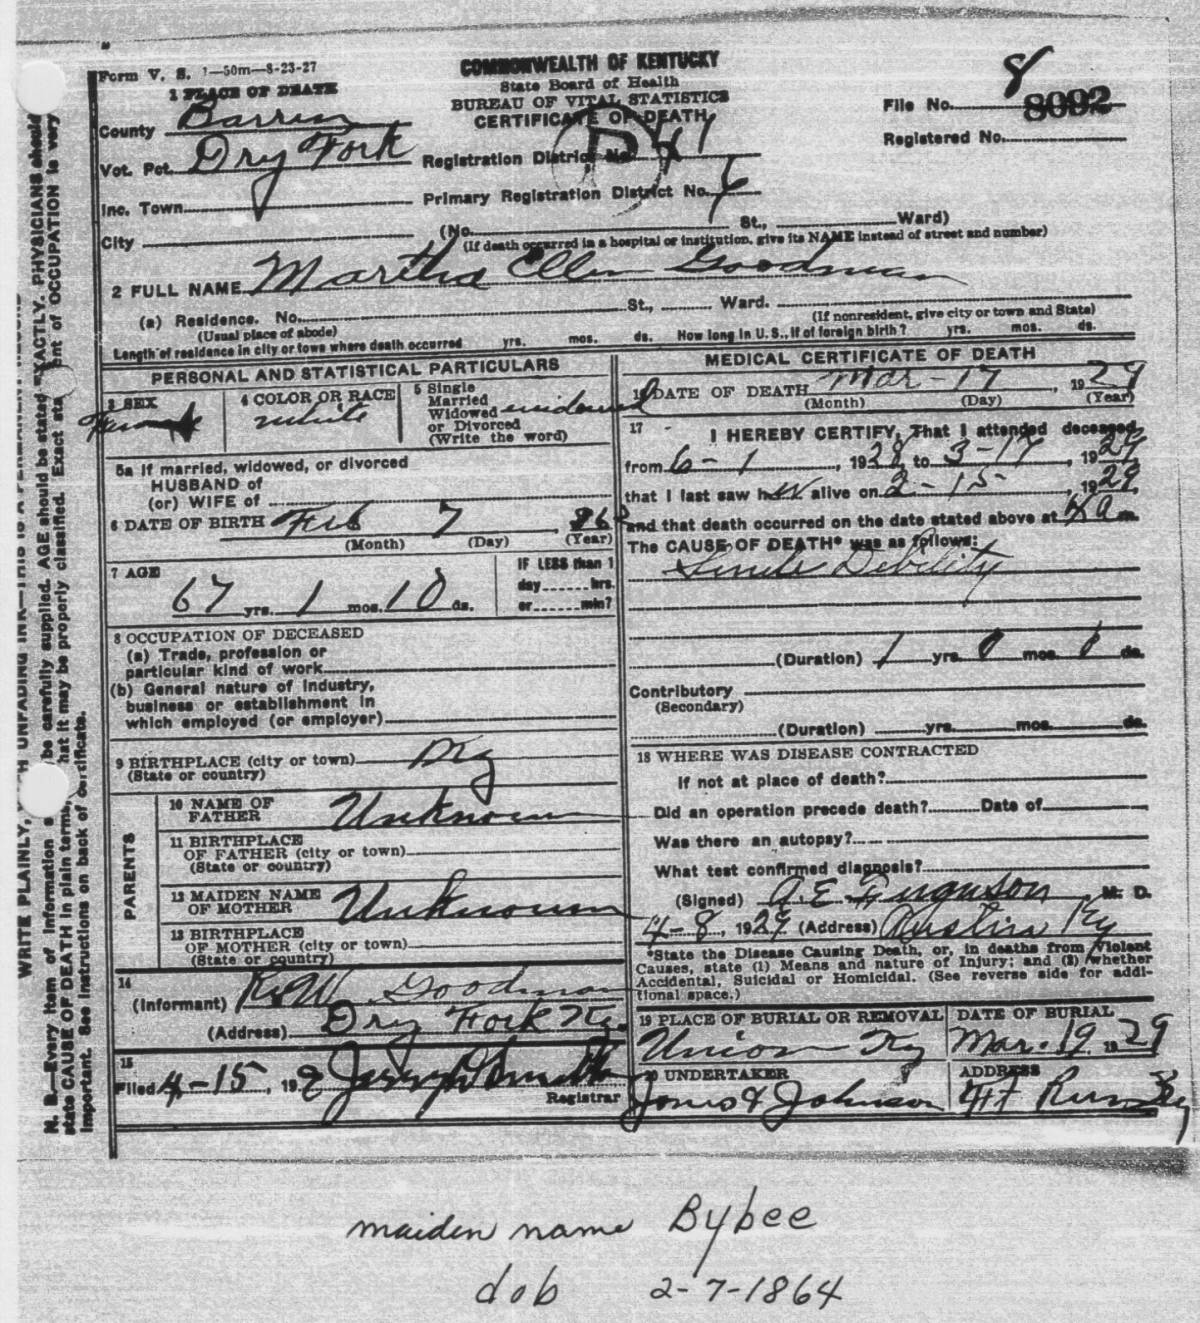 Form V. S. 1—50m—8-23-27
COMMONWEALTH OF KENTUCKY
State Board of Health
BUREAU OF VITAL STATISTICS
CERTIFICATE OF DEATH
8
File No. 8092
Registered No.
1 PLACE OF DEATH
County Barren
Vot. Pct. Dry Fork
Registration District No. 41
Inc. Town
Primary Registration District No. 6
City
(No. St., Ward)
(If death occurred in a hospital or institution, give its NAME instead of street and number)
2 FULL NAME Martha Ellen Goodman
(a) Residence. No. St., Ward.
(Usual place of abode) (If nonresident, give city or town and State)
Length of residence in city or town where death occurred yrs. mos. ds. How long in U. S., if of foreign birth? yrs. mos. ds.
PERSONAL AND STATISTICAL PARTICULARS
3 SEX Female
4 COLOR OR RACE white
5 Single
Married
Widowed widowed
or Divorced
(Write the word)
5a If married, widowed, or divorced
HUSBAND of
(or) WIFE of
6 DATE OF BIRTH Feb 7, 
(Month) (Day) (Year)
7 AGE
67 yrs. 1 mos. 10 ds.
IF LESS than 1
day hrs.
or min?
8 OCCUPATION OF DECEASED
(a) Trade, profession or
particular kind of work
(b) General nature of industry,
business or establishment in
which employed (or employer)
9 BIRTHPLACE (city or town) Ky
(State or country)
PARENTS
10 NAME OF
FATHER Unknown
11 BIRTHPLACE
OF FATHER (city or town)
(State or country)
12 MAIDEN NAME
OF MOTHER Unknown
13 BIRTHPLACE
OF MOTHER (city or town)
(State or country)
14
(Informant) R. W. Goodman
(Address) Dry Fork Ky.
15
Filed 4-15, 192
Registrar
MEDICAL CERTIFICATE OF DEATH
16 DATE OF DEATH Mar - 17, 1929
(Month) (Day) (Year)
17
I HEREBY CERTIFY, That I attended deceased
from 6-1, 1928, to 3-17, 1929
that I last saw her alive on 2-15-, 1929,
and that death occurred on the date stated above at 4 a m.
The CAUSE OF DEATH* was as follows:
Senile Debility
(Duration) 1 yrs. 0 mos. 0 ds.
Contributory
(Secondary)
(Duration) yrs. mos. ds.
18 WHERE WAS DISEASE CONTRACTED
If not at place of death?
Did an operation precede death? Date of
Was there an autopsy?
What test confirmed diagnosis?
(Signed) A. E. Ferguson, M. D.
4-8, 1929 (Address) Austin Ky
*State the Disease Causing Death, or, in deaths from Violent
Causes, state (1) Means and nature of Injury; and (2) whether
Accidental, Suicidal or Homicidal. (See reverse side for addi-
tional space.)
19 PLACE OF BURIAL OR REMOVAL
Union Ky
DATE OF BURIAL
Mar. 19 1929
20 UNDERTAKER
Jones & Johnson
ADDRESS
Ft Run Ky
WRITE PLAINLY, UNFADING INK—THIS IS A PERMANENT RECORD
N. B.—Every item of information be carefully supplied. AGE should be stated EXACTLY. PHYSICIANS should
state CAUSE OF DEATH in plain terms, that it may be properly classified. Exact of OCCUPATION is very
important. See instructions on back of certificate.
maiden name Bybee
dob 2-7-1864